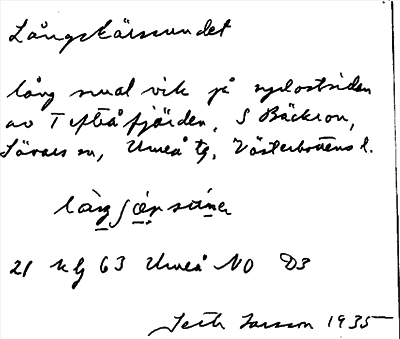 Långskärssundet
lång smal vik på nydostsidan
av Tefteåfjärden, S Bäckron,
Sävars sn, Umeå tg, Västerbottens l.
21 Kg 63 Umeå NO D3
1935